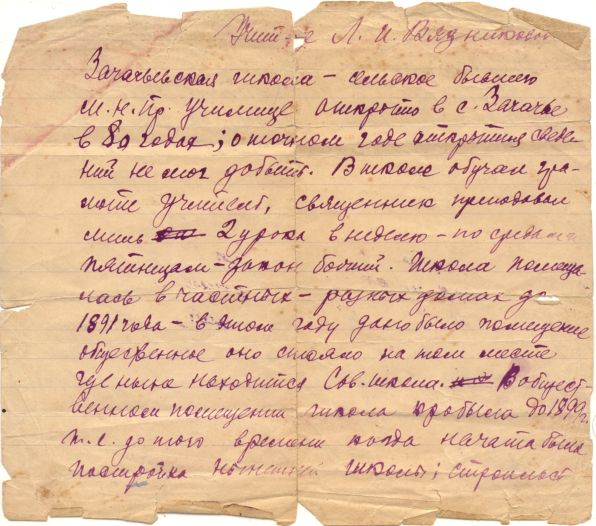 Учит-е Л. И. Вязниковой
Зачачьевская школа – сельское бывшее
м. н. пр. училище открыто в с. Зачачье
в 80 годах; о точном годе открытия сведе-
ний не мог добыть. В школе обучал гра-
моте учитель, священник преподавал
лишь 2 урока в неделю – по средам и
пятницам – закон божий. Школа помеща-
лась в частных – разных домах до
1891 года – в этом году дано было помещение
общественное оно стояло на том месте
где ныне находится Сов. школа. В общест-
венном помещении школа пробыла до 1899 г.
т. е. до того времени когда начата была
постройка нынешней школы; строилась